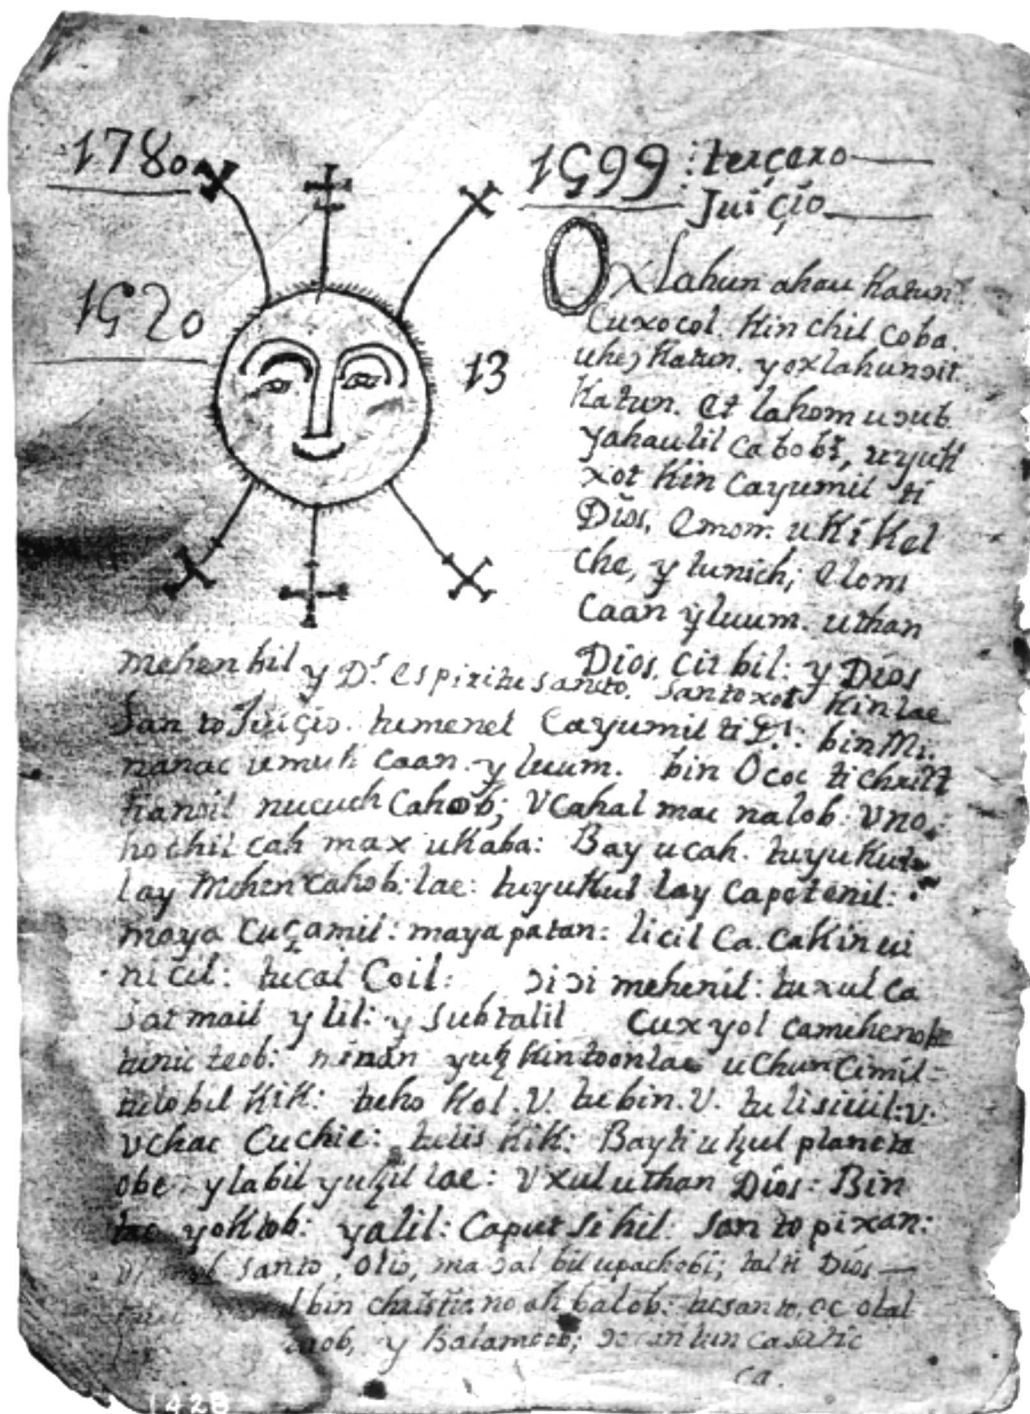 1780
1599 : terçero
Juiçio
1520
13
Oxlahun ahau Katun.
Cuxocol. Kin chil coba.
uheɔ Katun. y oxlahunɔit.
Katun. Et lahom uɔub
yahaulil cabobi, uyuk
xot Kin cayumil ti
Dios, emom. u Ki Kel
che, y tunich; elom
Caan y luum. uthan
Dios, citbil: y Dios
mehenbil y Ds. espiritu santo. santo xot Kin lae
San to Juiçio. tumenel Cayumil ti Ds: bin Mi.
nanac umuk caan. y luum. bin Ococ ti christ
tianoil nucuch cahob; Vcahal mac nalob: Vno.:
hochil cah max ukaba: Bay ucah. tuyukule
lay Mehen cahob: lae: tuyukul lay Capetenil:
maya Cuçamil: mayapatan: licil Ca. cakin ui
nicil: tucal Coil: ɔiɔi mehenil: tuxul ca
satmail y lil: y subtalil Cuxyol camehenob
tunicteob: minan yutz Kintoonlae uChun Cimil=
tulobil KiK: tuho Kol. V. tubin. V. tulisiuil: v.
Vchac Cuchie: tulis KiK: Bayti utzul planeta
obe ylabil yutzil lae: Vxuluthan Dios: Bin
tac yoKtob: yalil: Caput sihil: san to pixan:
santo, Olio, maɔal bil upachobi; tal ti Dios
bin christiano ah balob: tusanto, oc olal
y Balamoob; ca satic
ca.
1428